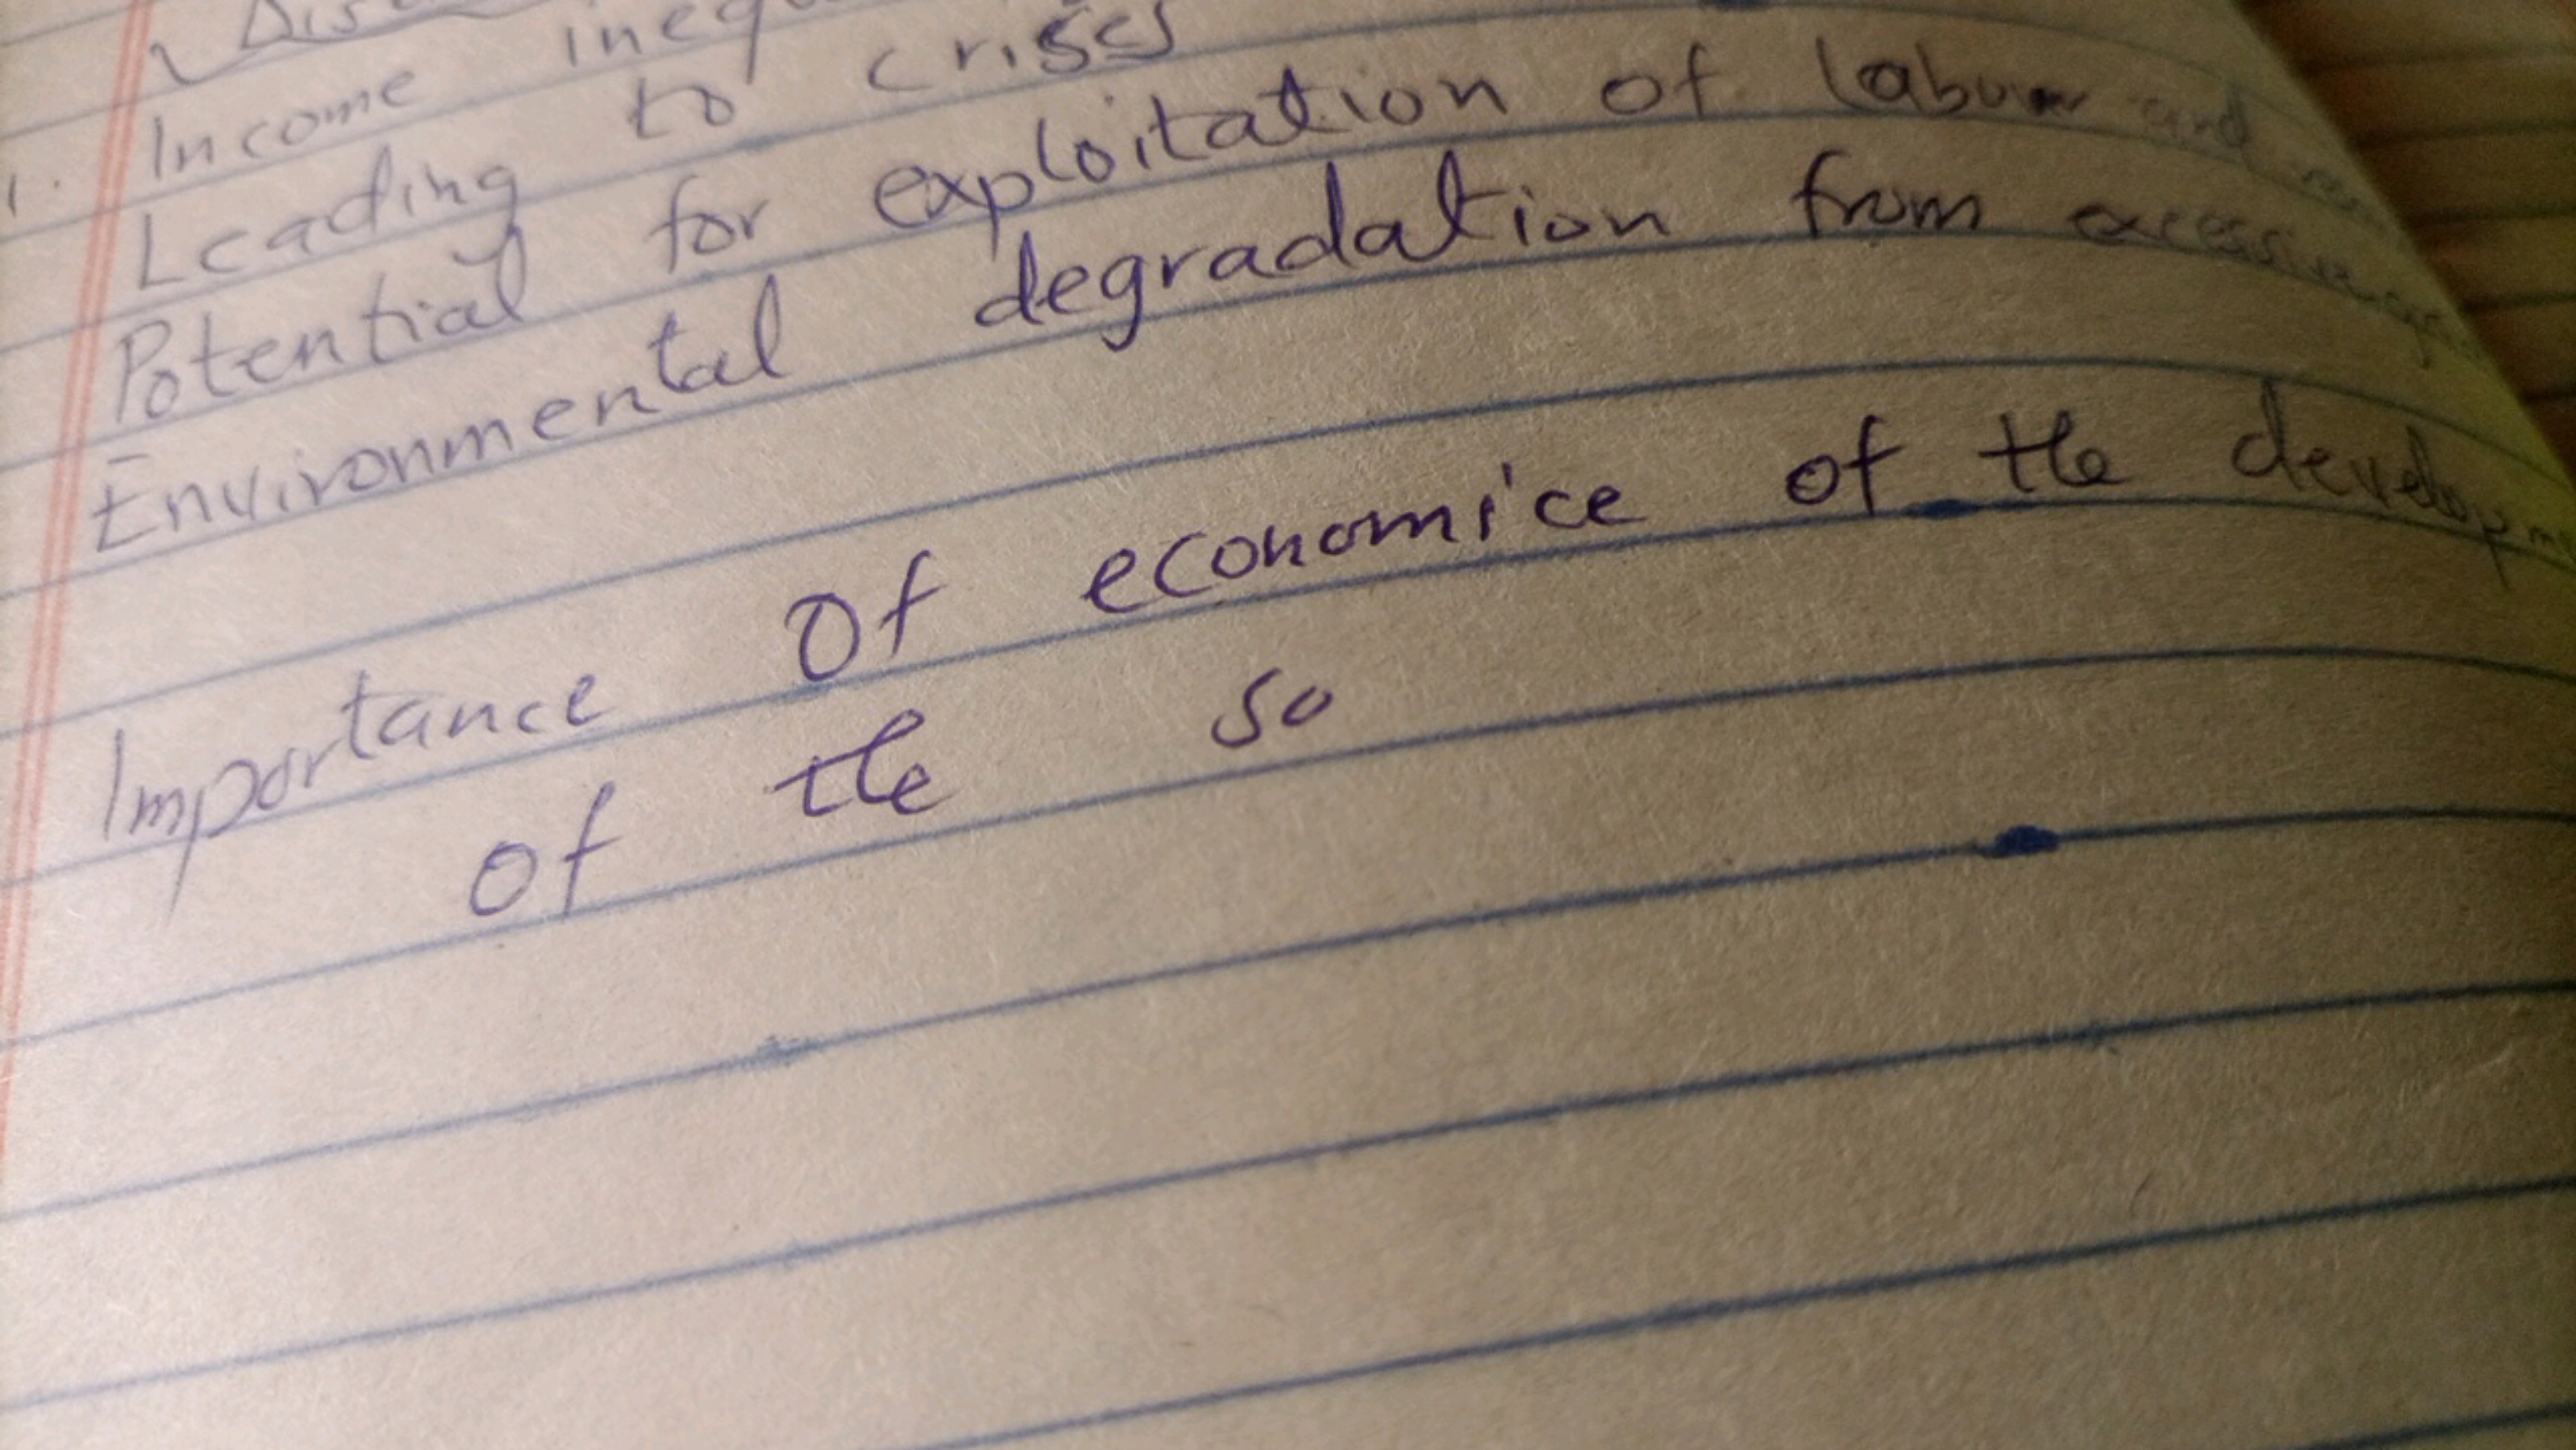 1. Income
Leading to crises
Potential for exploitation of labour and
Environmental degradation from excessive
Importance Of economice of the
of the so